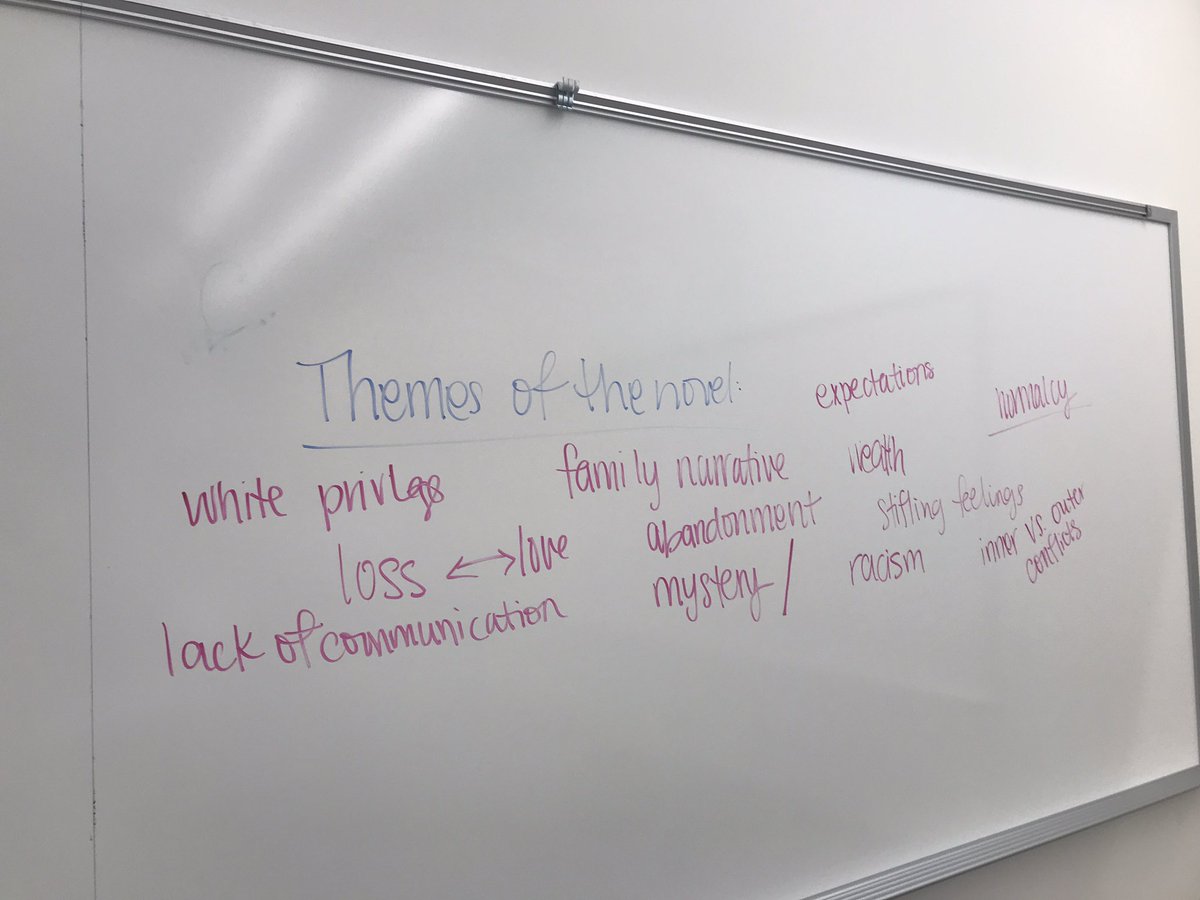 Themes of the novel:
expectations
normalcy
white privlegs
family narrative
wealth
loss ↔ love
abandonment
stifling feelings
lack of communication
mystery/
racism
inner vs. outer
conflicts